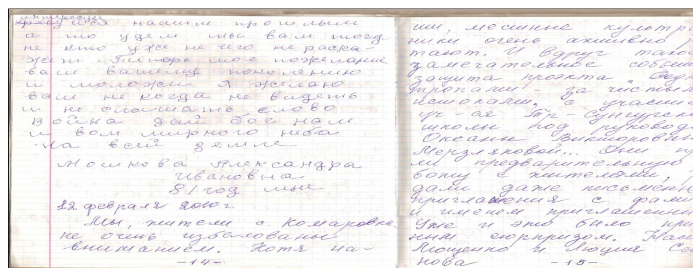 интересуй
тресуйтеся нашим прошлым
а то удем мы вам тогд
не кто уже не чего не раска-
жет. Теперь мое пожелание
вам вашему поколению
и молодежи я желаю
вам не когда не видеть
и не слышать слово
Война дай бог нам
и вам мирного неба
на всей земле
Мошкова Александра
Ивановна
81 год мне
22 февраля 2010 г
Мы, жители с Комаровка,
не очень избалованы
вниманием. Хотя на-
-14-
ши, местные культра
ники очень активно
тают. И вдруг тако
замечательное собы
защита проэкта „
тропами - за чистым
истоками," с участи
уч-ся Тр-Сунгурск
школы под руковод
Оксаны Викторовн
Мерзляковой... Они пр
ли предварительную
вони с жителями,
дали даже письмен
приглашения с фами
и именем приглашенн
Уже и это было при
ным сюрпризом. Нам
Мощенко и Люция Се
нова
-15-